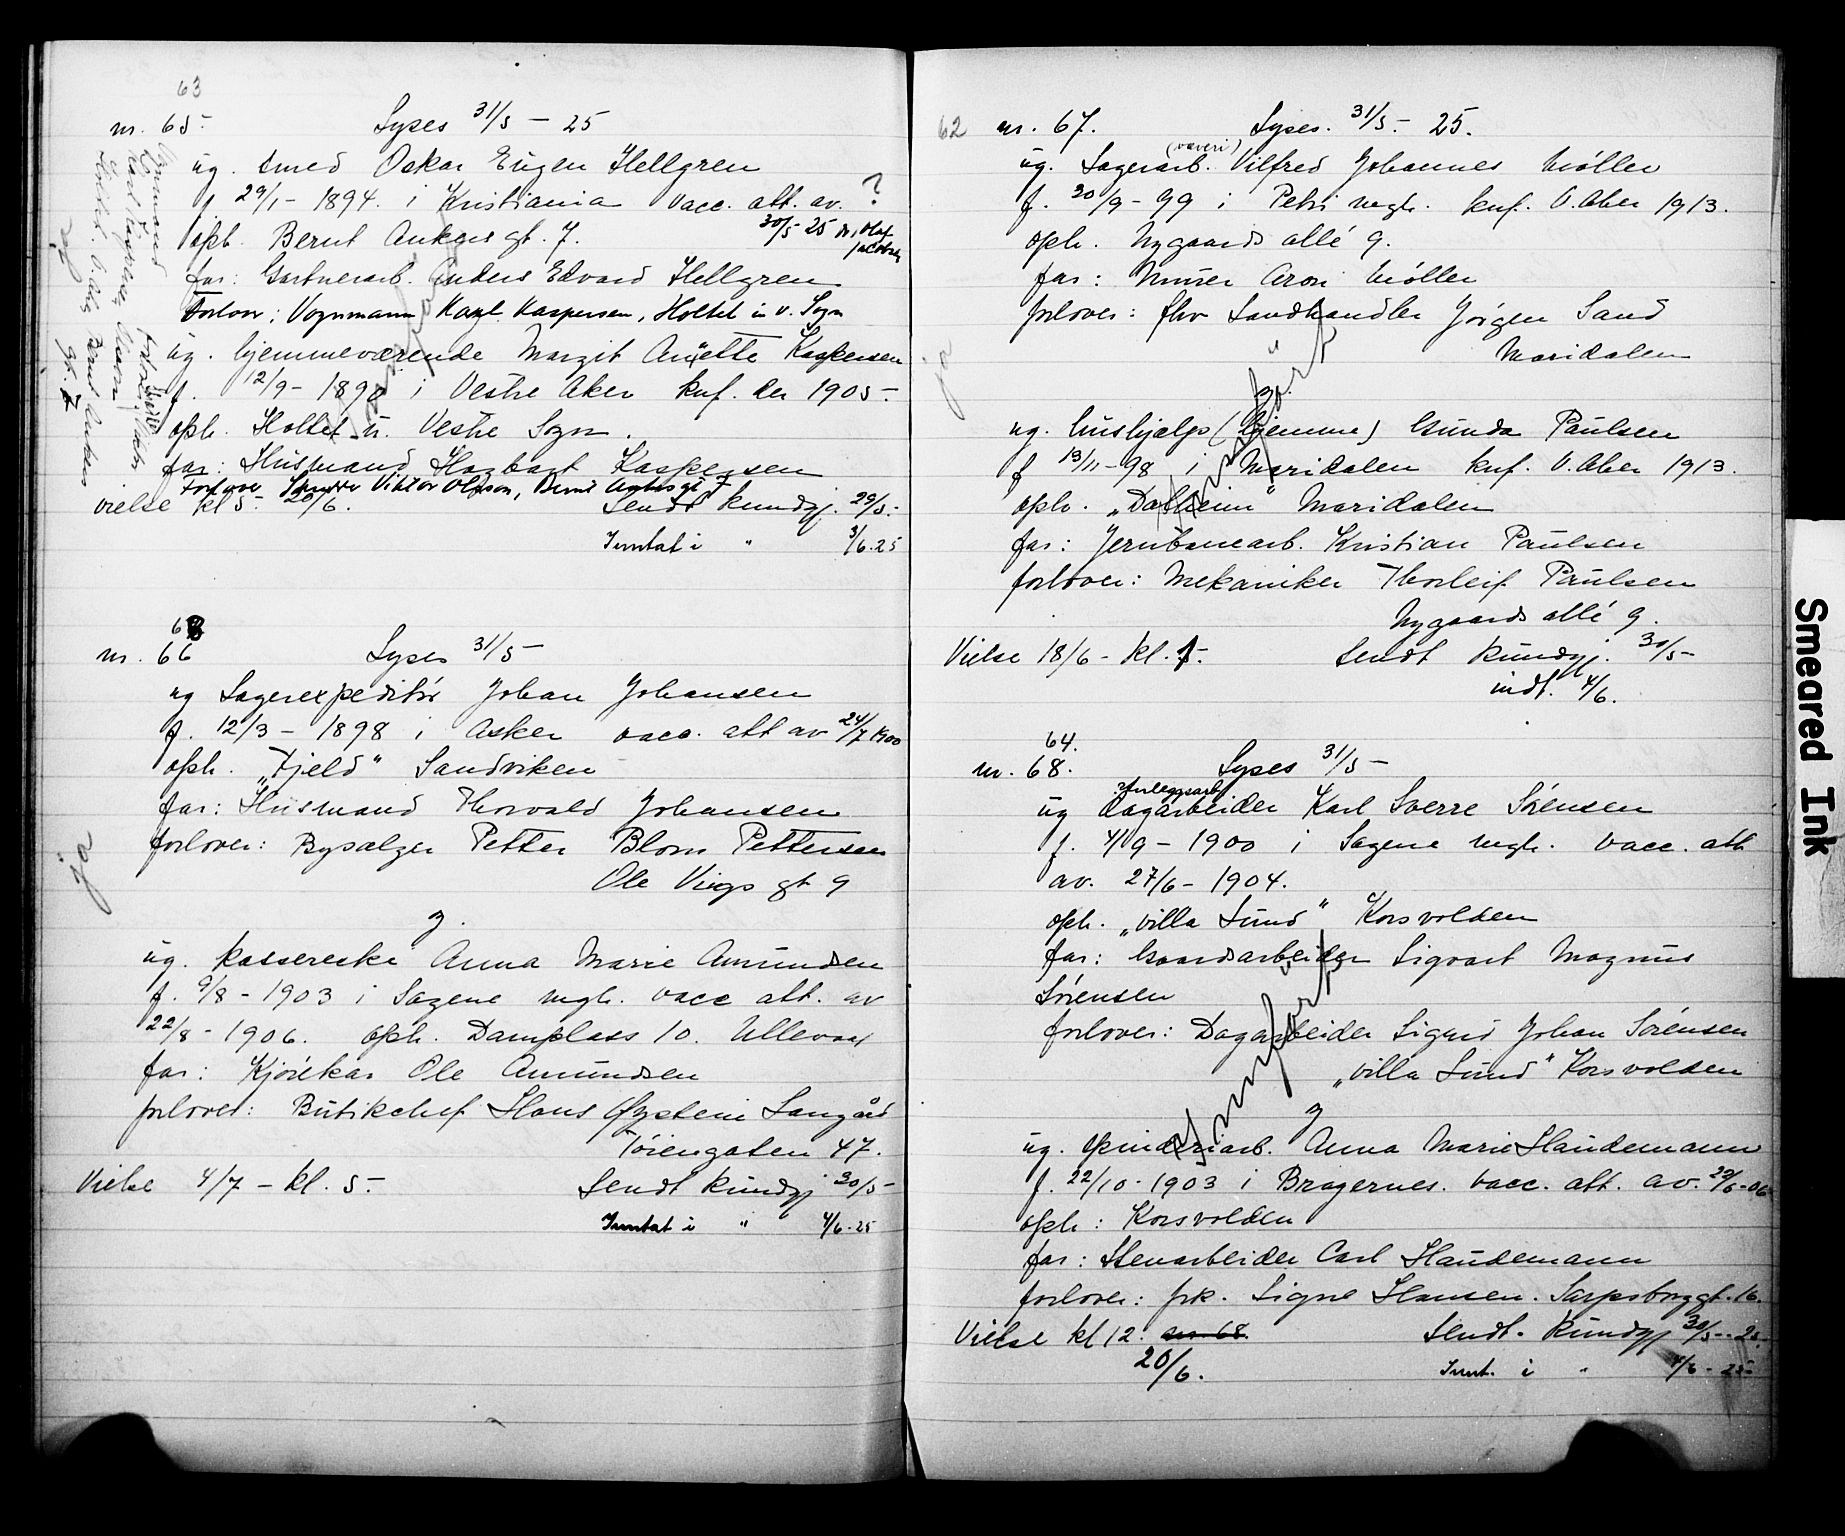 63
nr. 65. Lyses 31/5 - 25
ug. smed Oskar Eugen Hellgren
f 29/1 - 1894. i Kristiania vacc. att. av. ?
30/5-25 Dr. Olaf Jacobsen
oph. Bernt Ankers gt. 7.
far: Gartnerarb. Anders Edvard Hellgren
Forlover: Vognmann Karl Kaspersen, Holtet in v. Sogn
ug. hjemmeværende Margit Anette Kaspersen
f. 12/9 - 1890 i Vestre Aker knf. der 1905 -
oph. Holtet n. Vestre Sogn.
far: Husmand Hagbart Kaspersen
Forlover Viktor Olsson, Bernt Ankersgt 7
vielse kl 5. 20/6. Sendt kundgj. 29/5.-
Inntat i " 3/6.25
63
nr. 66 Lyses 31/5 -
ug Lagerexpeditør Johan Johansen
f. 12/3 - 1898 i Asker vacc. att av 24/7 1900
oph. „Fjeld" Sandviken
far: Husmand Thorvald Johansen
forlover: Bysælger Petter Blom Pettersen
Ole Vigs gt 9
ja
g.
ug. kassererske Anna Marie Amundsen
f. 9/8 - 1903 i Sagene mgh. vacc att. av
22/8 - 1906. oph. Damplass 10. Ulleval
far: Kjørekar Ole Amundsen
forlover: Butikchef Hans Øystein Langård
Tøiengaten 47.
Vielse 4/7 - kl. 5. Sendt kundgj 30/5 -
Inntat i " 4/6-25
62 nr. 67. Lyses. 31/5.- 25.
(væveri)
ug. Lagerarb. Vilfred Johannes Møller
f. 20/9 - 99 i Petri mgh. knf. V. Aker 1913.
oph. Nygaards allé 9.
far: Murer Aron Møller
forlover: fhv Landhandler Jørgen Sand
Maridalen
ja
ug. hushjælp (hjemme) Gunda Paulsen
f 13/11 - 98 i Maridalen knf. V. Aker 1913.
oph. „Dalheim" Maridalen
far: Jernbanearb. Kristian Paulsen
forlover: Mekaniker Thorleif Paulsen
Nygaards allé 9.
Vielse 18/6 - kl. 1.- Sendt kundgj. 30/5 -
indt. 4/6.
64.
nr. 68. Lyses 31/5 -
Anleggsarb
ug dagarbeider Karl Sverre Sørensen
f. 4/9 - 1900 i Sagene mgh. vacc. att
av. 27/6 - 1904.
oph. „villa Lund" Korsvolden
far: Gaardsarbeider Sigvart Magnus
Sørensen
forlover: Dagarbeider Sigurd Johan Sørensen
„villa Lund" Korsvolden
Innført
g
ug. spinderiarb. Anna Marie Haudemann
f. 22/10 - 1903 i Bragernes. vacc. att. av. 29/6 - 06
oph: Korsvolden
far: Stenarbeider Carl Haudemann
forlover: frk. Signe Hansen. Sarpsborggt. 16.
Vielse kl 12. nr 68. Sendt. kundgj 30/5 - 25.
20/6. Innt. i " 4/6 - 25-
Smeared Ink